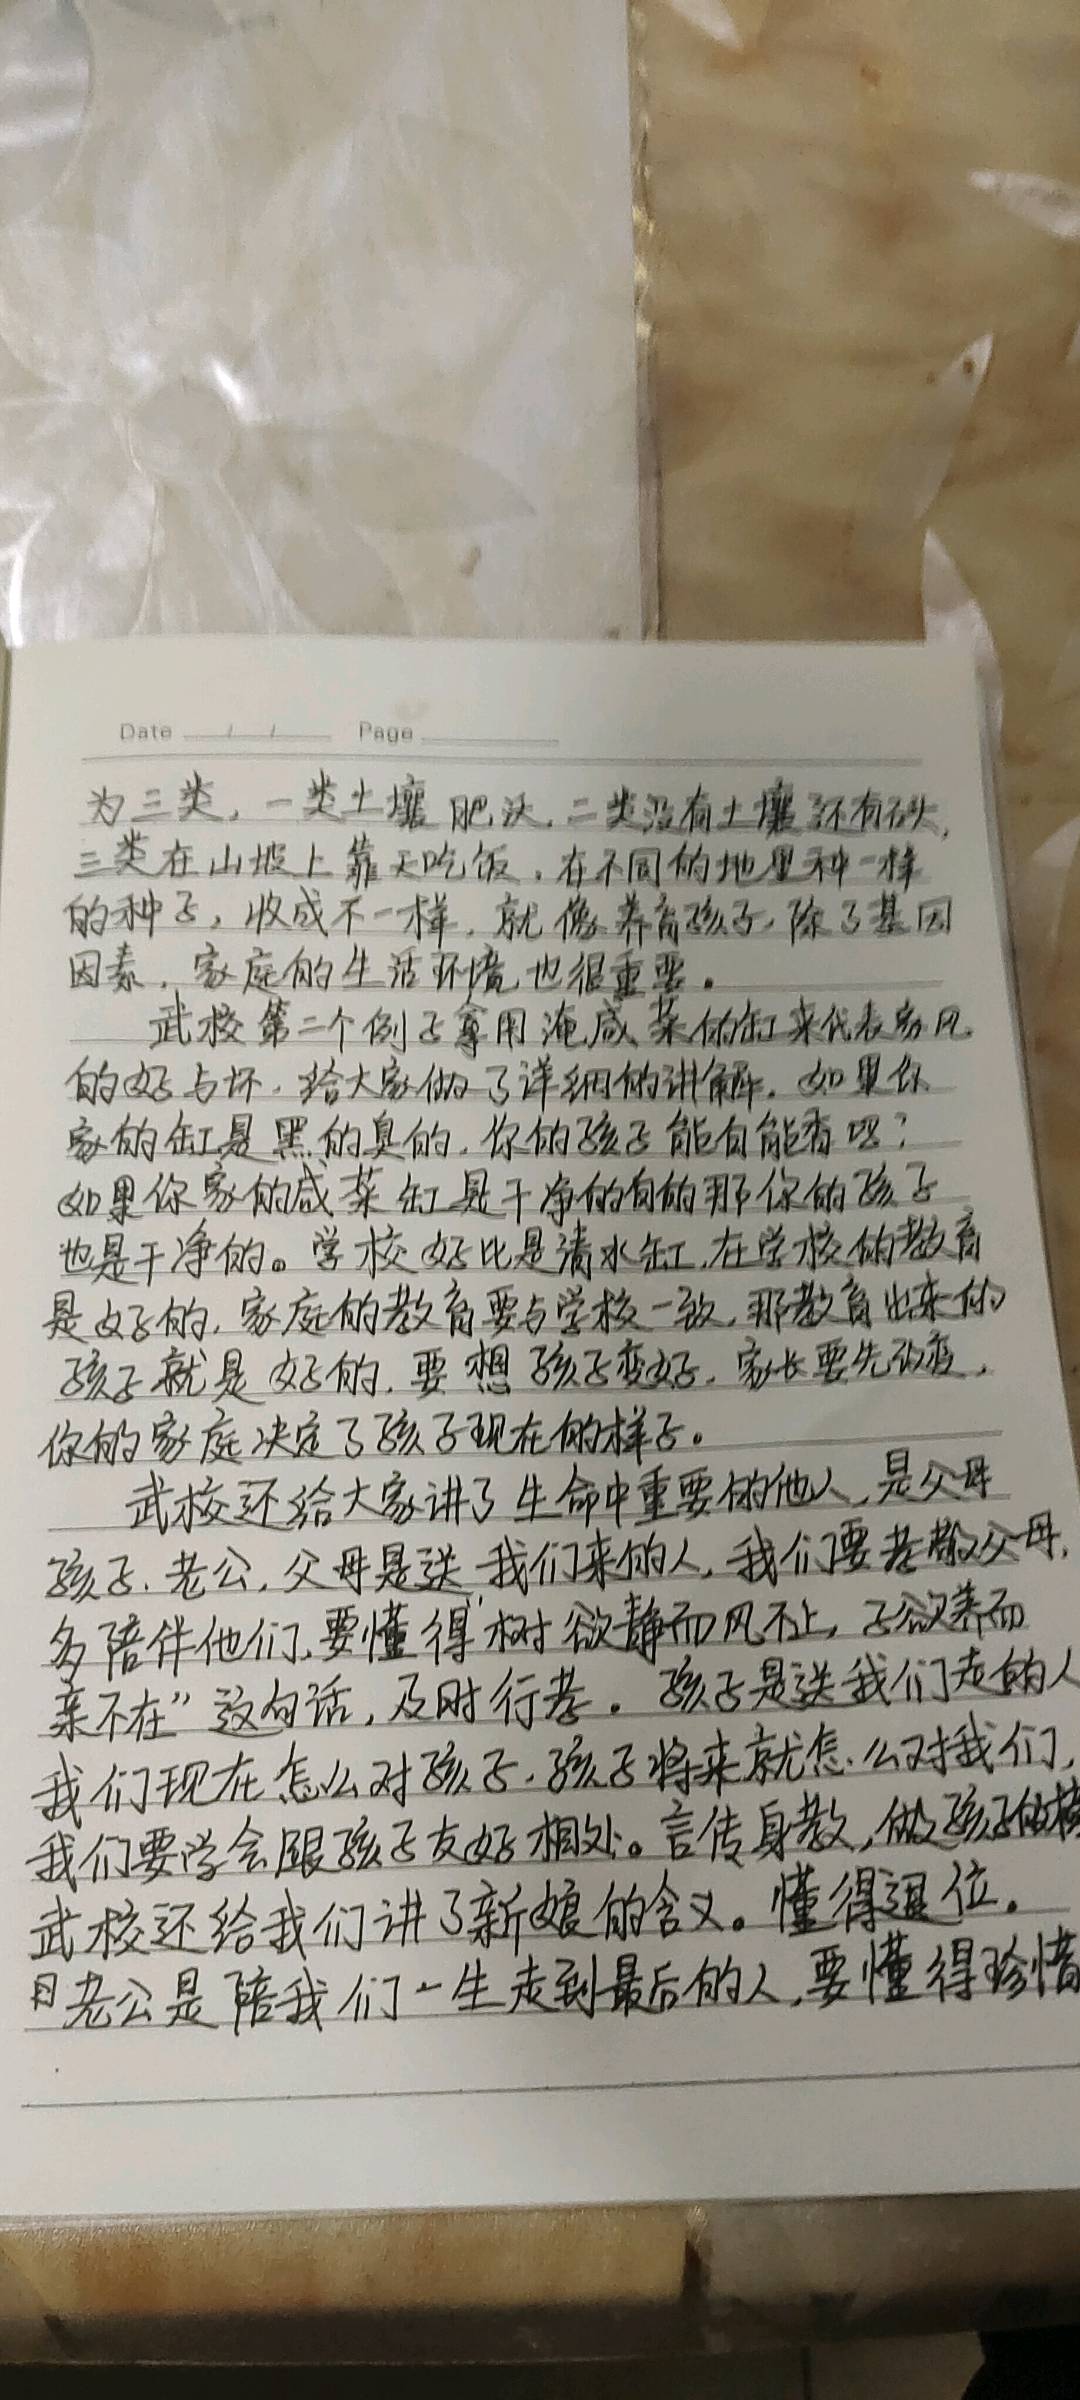 Date / / Page
为三类，一类土壤肥沃，二类没有土壤还有石头，
三类在山坡上靠天吃饭，在不同的地里种一样
的种子，收成不一样，就像养育孩子，除了基因
因素，家庭的生活环境也很重要。
武校第二个例子拿用淹咸菜的缸来代表家风
的好与坏，给大家做了详细的讲解。如果你
家的缸是黑的臭的，你的孩子能白能香吧？
如果你家的咸菜缸是干净的白的那你的孩子
也是干净的。学校好比是清水缸，在学校的教育
是好的，家庭的教育要与学校一致，那教育出来的
孩子就是好的，要想孩子变好，家长要先改变，
你的家庭决定了孩子现在的样子。
武校还给大家讲了生命中重要的他人，是父母
孩子、老公，父母是送我们来的人，我们要孝敬父母，
多陪伴他们，要懂得“树欲静而风不止，子欲养而
亲不在”这句话，及时行孝。孩子是送我们走的人
我们现在怎么对孩子，孩子将来就怎么对我们，
我们要学会跟孩子友好相处。言传身教，做孩子的榜
武校还给我们讲了新娘的含义。懂得退位。
老公是陪我们一生走到最后的人，要懂得珍惜